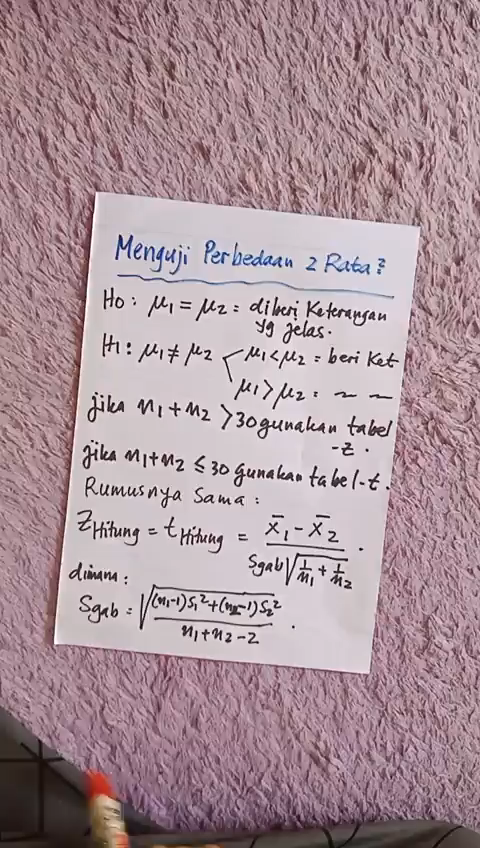 Menguji Perbedaan 2 Rata²
Ho : μ₁ = μ₂ = diberi Keterangan
yg jelas.
H₁ : μ₁ ≠ μ₂ < μ₁ < μ₂ = beri Ket
μ₁ > μ₂ = ~ ~
jika n₁ + n₂ > 30 gunakan tabel
-z.
jika n₁+n₂ ≤ 30 gunakan tabel-t.
Rumusnya Sama :
Z Hitung = t Hitung = (x̄₁ - x̄₂) / (Sgab √(1/n₁ + 1/n₂)) .
dimana :
Sgab = √(((n₁-1)S₁² + (n₂-1)S₂²) / (n₁+n₂-2)) .